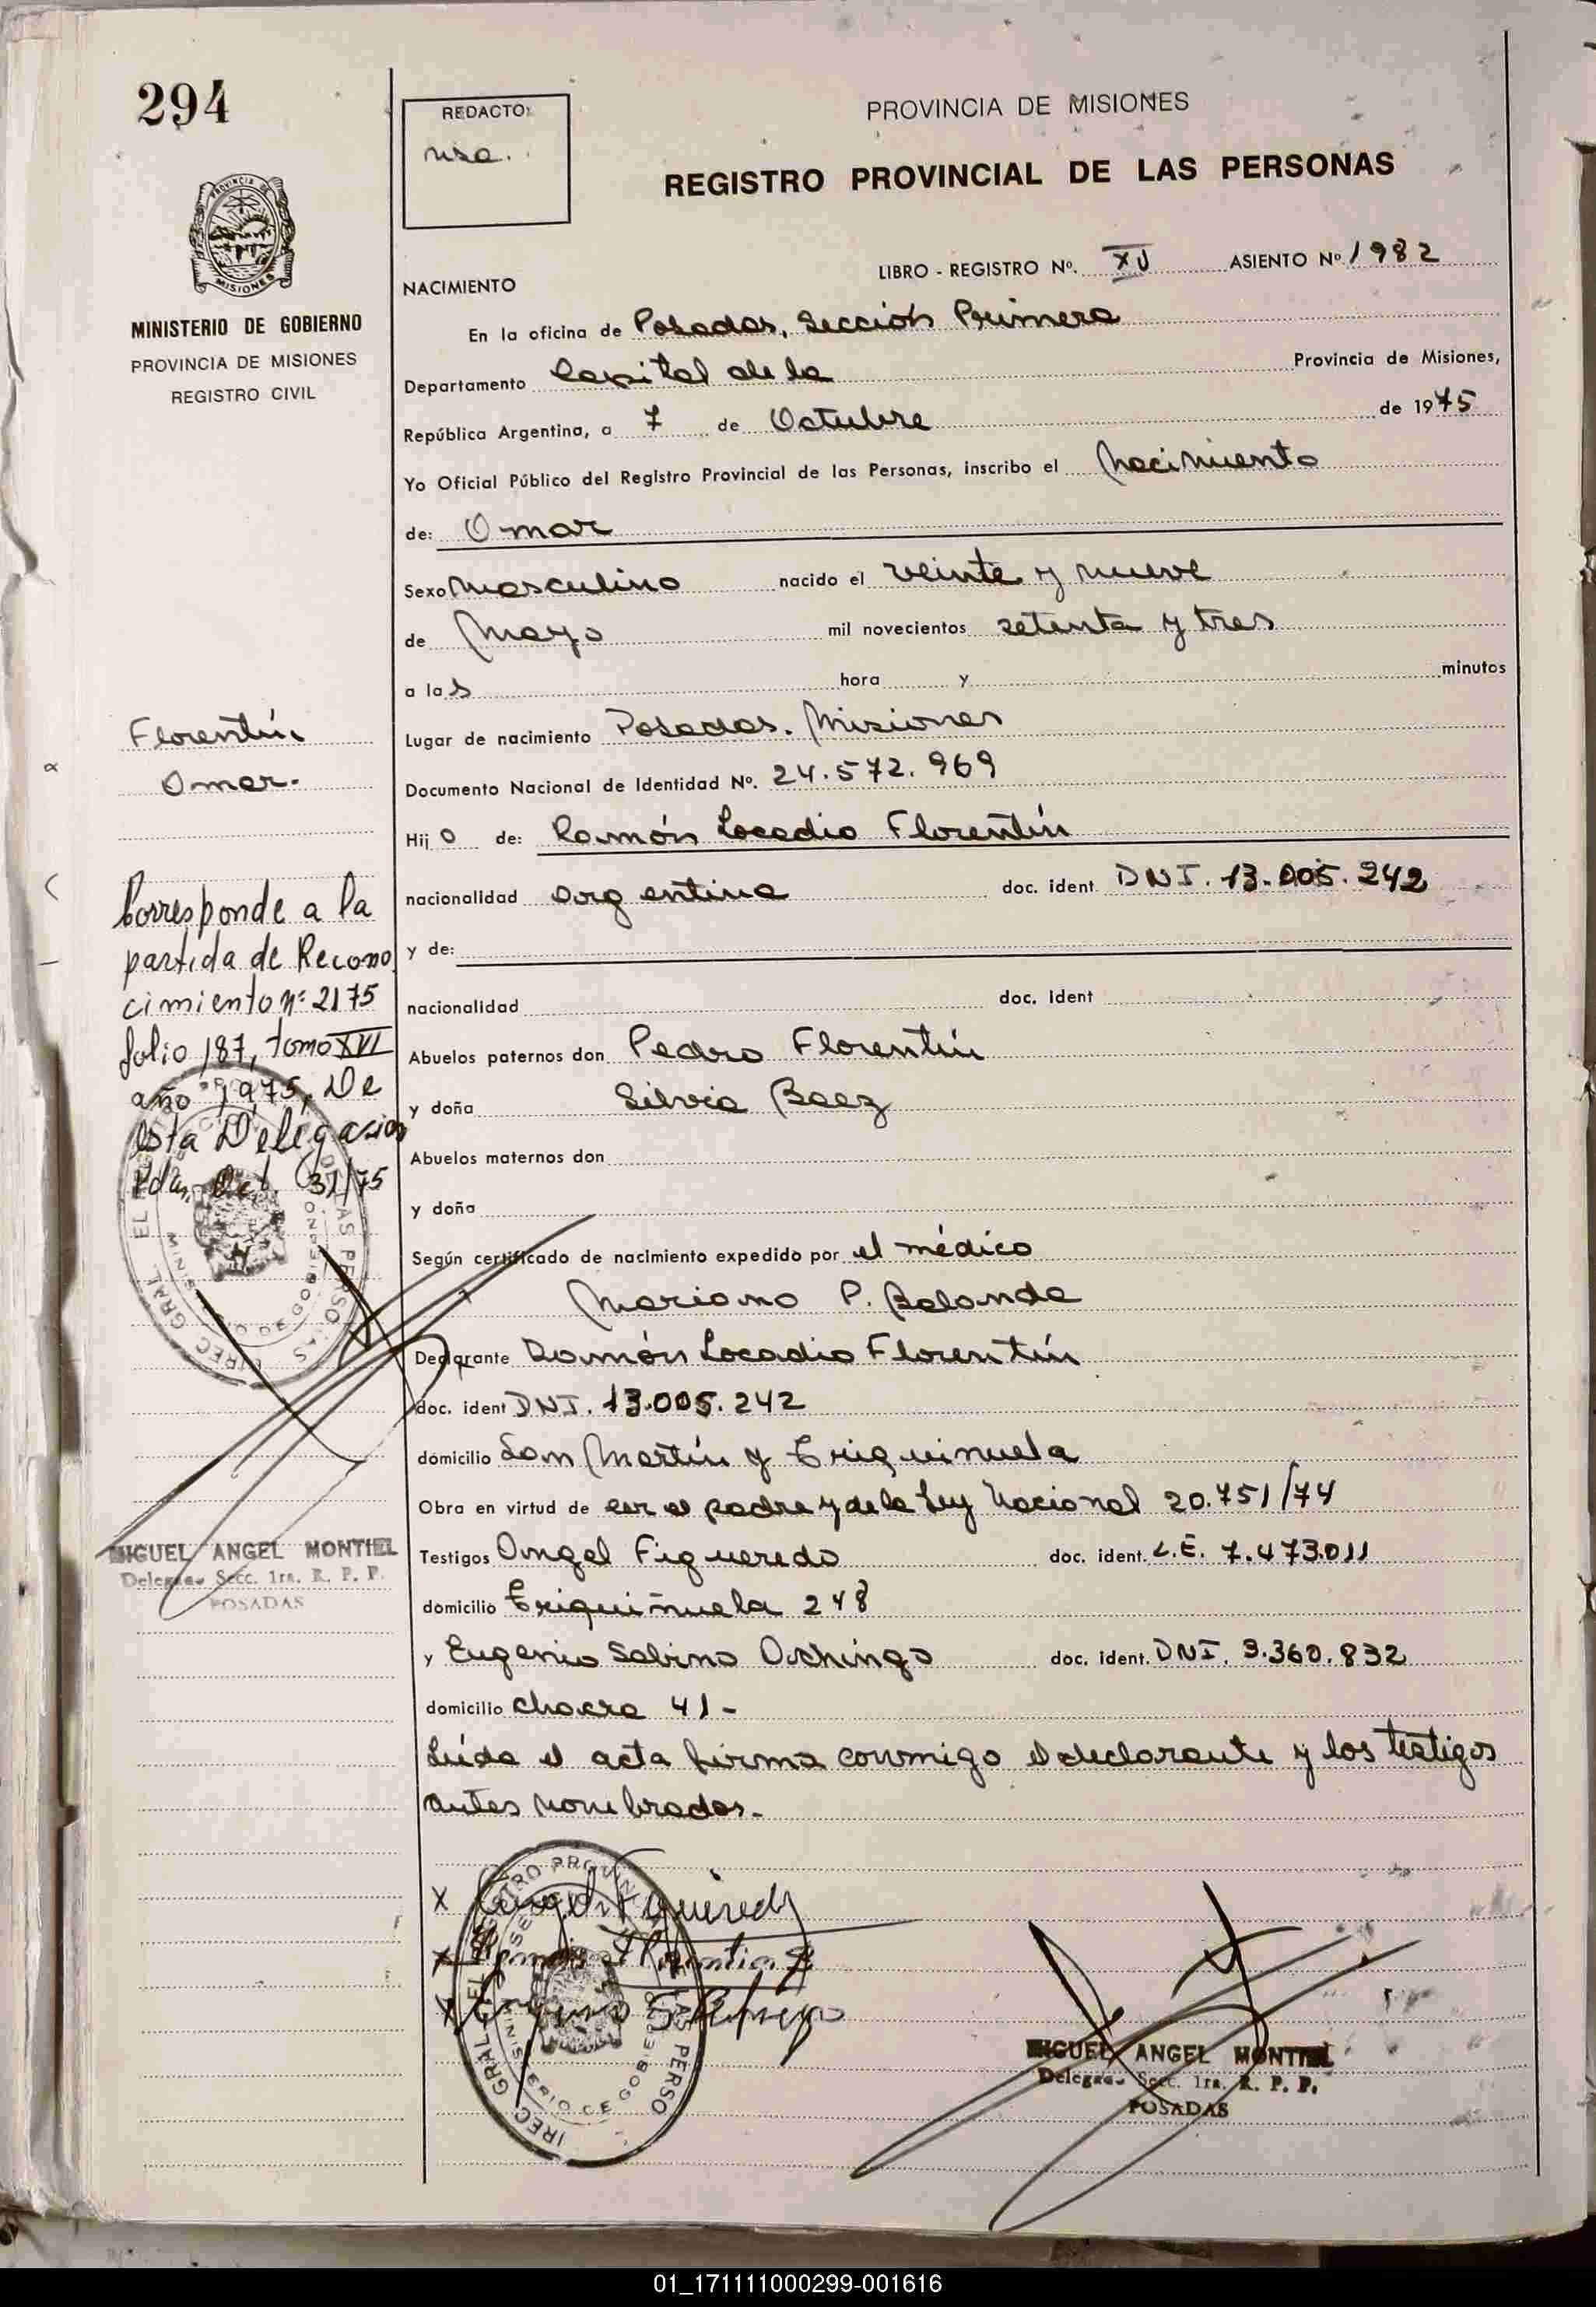 294
REDACTO:
PROVINCIA DE MISIONES
REGISTRO PROVINCIAL DE LAS PERSONAS
MINISTERIO DE GOBIERNO
PROVINCIA DE MISIONES
REGISTRO CIVIL
LIBRO - REGISTRO Nº. XV ASIENTO Nº 1982
NACIMIENTO
En la oficina de Posadas, Sección Primera
Departamento Capital de la Provincia de Misiones,
República Argentina, a 7 de Octubre de 1975
Yo Oficial Público del Registro Provincial de las Personas, inscribo el Nacimiento
de: Omar
Sexo Masculino nacido el veinte y nueve
de Mayo mil novecientos setenta y tres
a las hora y minutos
Lugar de nacimiento Posadas. Misiones
Documento Nacional de Identidad Nº. 24.572.969
Hijo de: Ramón Locadio Florentín
nacionalidad argentina doc. ident. DNI. 13.005.242
y de:
nacionalidad doc. ident
Abuelos paternos don Pedro Florentín
y doña Silvia Baez
Abuelos maternos don
y doña
Según certificado de nacimiento expedido por el médico
Mariano P. Balanda
Declarante Ramón Locadio Florentín
doc. ident DNI. 13.005.242
domicilio San Martín y
Obra en virtud de ser el padre y de la Ley Nacional 20.751/74
Testigos Angel Figueredo doc. ident. L.E. 7.473.011
domicilio 248
y Eugenio Sabino doc. ident. DNI. 9.360.832
domicilio chacra 41-
Leída el acta firma conmigo el declarante y los testigos
antes nombrados.-
Florentín
Omar.
Corresponde a la
partida de Recono
cimiento nº 2175
folio 187, tomo XVI
año 1975, De
esta Delegacion
Pdas. Oct. 31/75
MIGUEL ANGEL MONTIEL
Delegado Secc. 1ra. R. P. P.
POSADAS
X Angel Figueredo
X
X
MIGUEL ANGEL MONTIEL
Delegado Secc. 1ra. R. P. P.
POSADAS
01_171111000299-001616